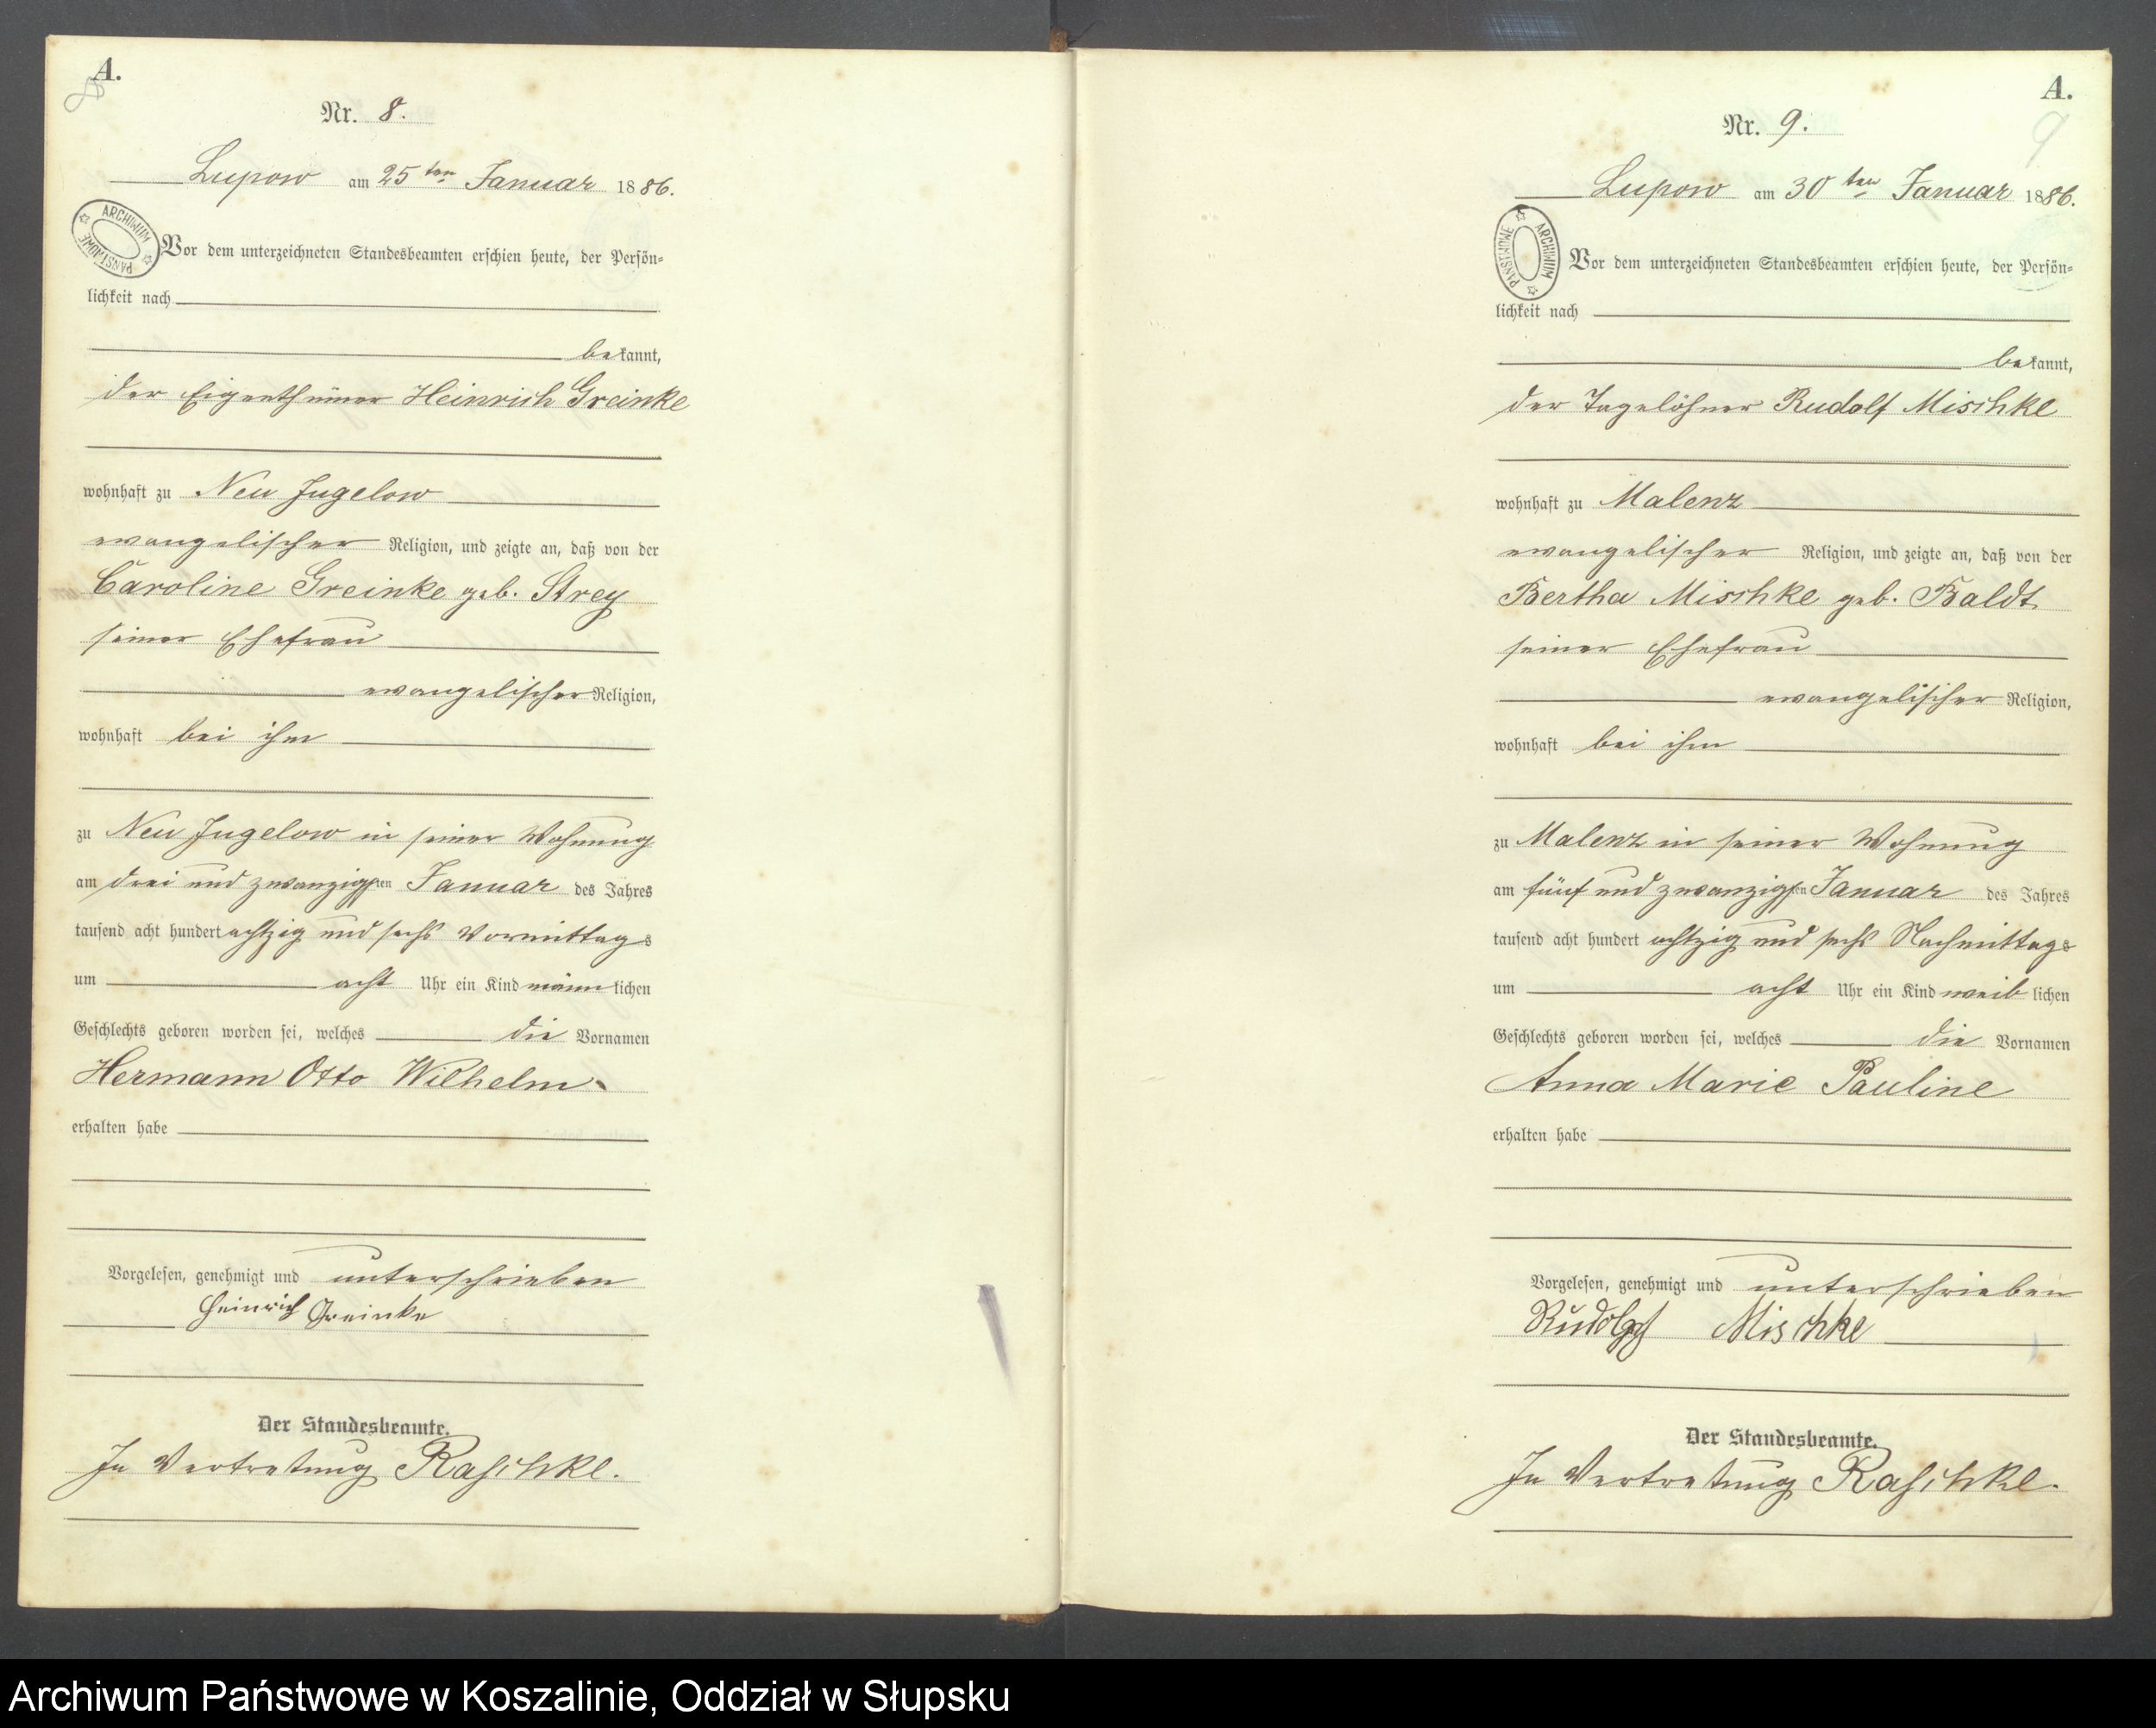 A.
8
Nr. 8.
Lupow am 25ten Januar 1886.
ARCHIWUM PAŃSTWOWE
Vor dem unterzeichneten Standesbeamten erschien heute, der Persön-
lichkeit nach
bekannt,
der Eigenthümer Heinrich Greinke
wohnhaft zu Neu Jugelow
evangelischer Religion, und zeigte an, daß von der
Caroline Greinke geb. Strey
seiner Ehefrau
evangelischer Religion,
wohnhaft bei ihm
zu Neu Jugelow in seiner Wohnung
am drei und zwanzigsten Januar des Jahres
tausend acht hundert achtzig und sechs Vormittags
um acht Uhr ein Kind männlichen
Geschlechts geboren worden sei, welches die Vornamen
Hermann Otto Wilhelm
erhalten habe
Vorgelesen, genehmigt und unterschrieben
Heinrich Greinke
Der Standesbeamte.
In Vertretung Raschke.
A.
9
Nr. 9.
Lupow am 30ten Januar 1886.
ARCHIWUM PAŃSTWOWE
Vor dem unterzeichneten Standesbeamten erschien heute, der Persön-
lichkeit nach
bekannt,
der Tagelöhner Rudolf Mischke
wohnhaft zu Malenz
evangelischer Religion, und zeigte an, daß von der
Bertha Mischke geb. Baldt
seiner Ehefrau
evangelischer Religion,
wohnhaft bei ihm
zu Malenz in seiner Wohnung
am fünf und zwanzigsten Januar des Jahres
tausend acht hundert achtzig und sechs Nachmittags
um acht Uhr ein Kind weiblichen
Geschlechts geboren worden sei, welches die Vornamen
Anna Marie Pauline
erhalten habe
Vorgelesen, genehmigt und unterschrieben
Rudolph Mischke
Der Standesbeamte.
In Vertretung Raschke.
Archiwum Państwowe w Koszalinie, Oddział w Słupsku